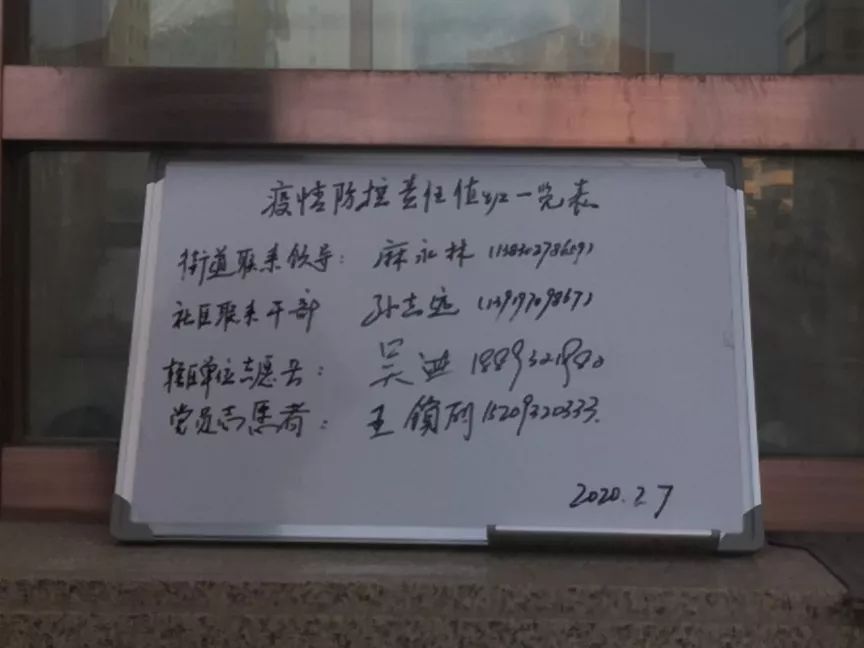 疫情防控责任值班一览表
街道联系领导: 麻永林
社区联系干部 孙志远
辖区单位志愿者: 吴
党员志愿者: 王 15209320333.
2020.2.7